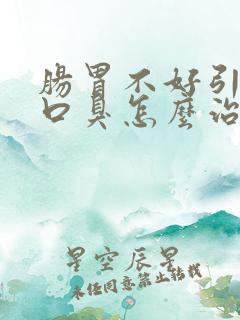 腸胃不好引
口臭怎麼治
星空辰星
未经同意禁止转载